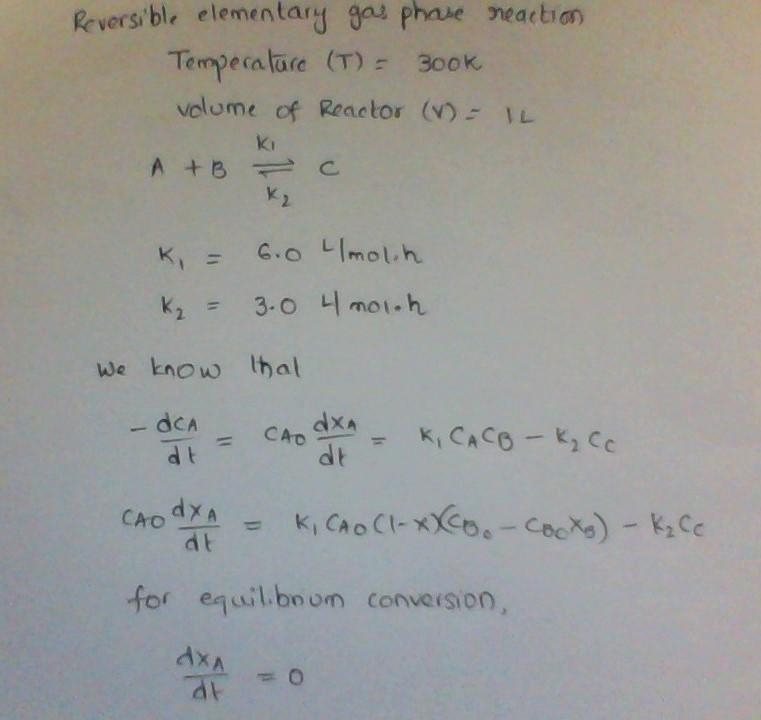 Reversible elementary gas phase reaction
Temperature (T) = 300K
volume of Reactor (V) = 1L
A + B ⇌ C
K1
K2
K1 = 6.0 L/mol.h
K2 = 3.0 L/mol.h
We know that
- dCA/dt = CAO dXA/dt = K1 CA CB - K2 CC
CAO dXA/dt = K1 CAO (1-X)(CBo - CBO XB) - K2 CC
for equilibrium conversion,
dXA/dt = 0